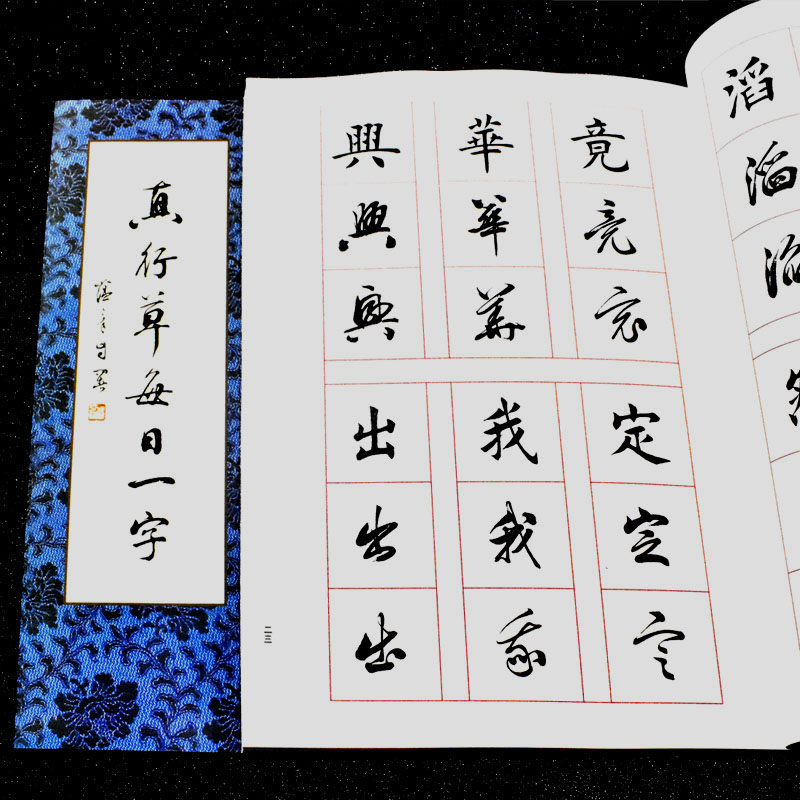 真行草每日一字
竟 華 興
竟 華 興
竟 華 興
定 我 出
定 我 出
定 我 出
滔
滔
滔
二三